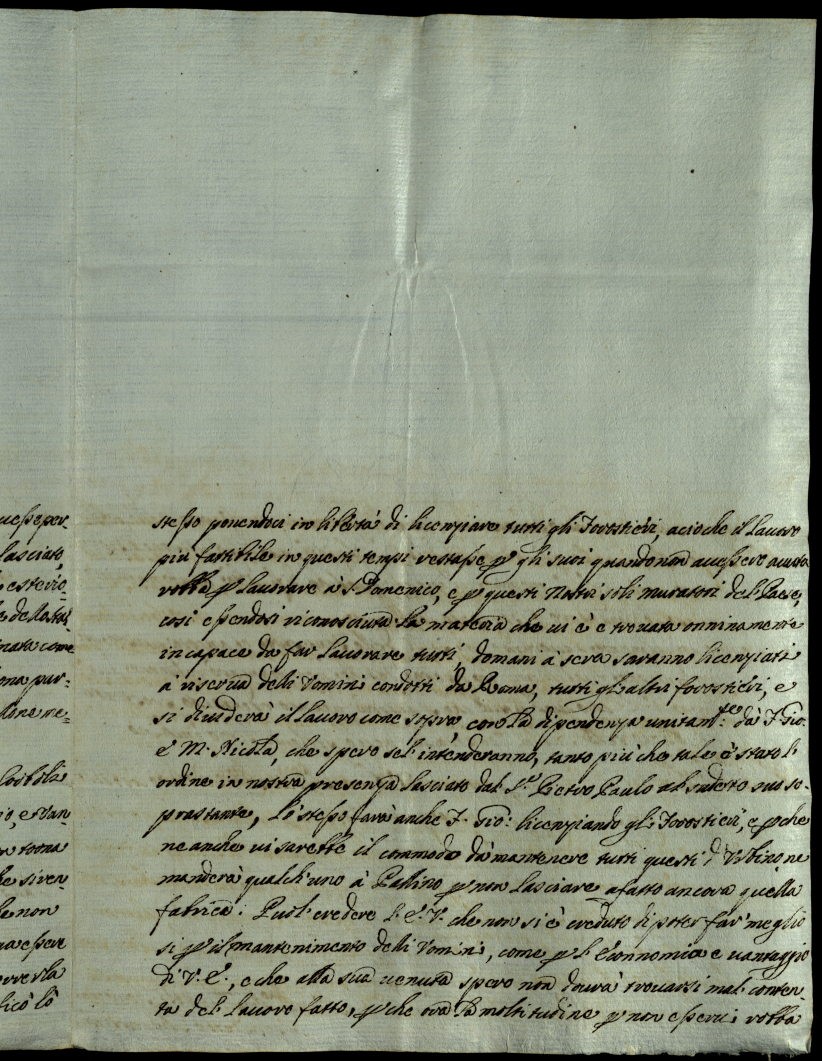 uesse per-
lasciato,
esterio-
e della tal-
inata come
ona pur-
done ne-
n torna
he si ven-
le non
na essere
overla
ficò lo
stesso ponendoci in libertà di licenziare tutti gli Forostieri, acioche il Lavoro
più fattibile in questi tempi restasse p gli suoi quando non avessero avuta
robba p lavorare à S. Domenico, e p questi nostri soli muratori del Paese,
così essendosi riconosciuta la materia che vi è e trovata onninamente
incapace da far lavorare tutti, domani à sera saranno licenziati
à riserva delli Uomini condotti da Roma, tutti gl'altri forostieri, e
si dividerà il lavoro come sopra con la dipendenza unitam.te dà F. Gio:
e M. Nicola, che spero sel'intenderanno, tanto più che tale è stato l'
ordine in nostra presenza lasciato dal S.r Pietro Paulo al sudetto suo so-
prastante, lo stesso farà anche F. Gio: licenziando gl'Forostieri, e pche
ne anche vi sarebbe il commodo dà mantenere tutti questi d'Urbino ne
manderà qualch'uno à Pallino p non lasciare afatto ancora quella
fabrica: Puol credere l'E.V. che non si è creduto di poter far' meglio
si p il mantenimento delli Uomini, come p l'Econnomia e vantaggio
di V.E., e che alla sua venuta spero non dovrà trovarsi mal conten-
ta del lavoro fatto, pche ora la moltitudine p non esservi robba